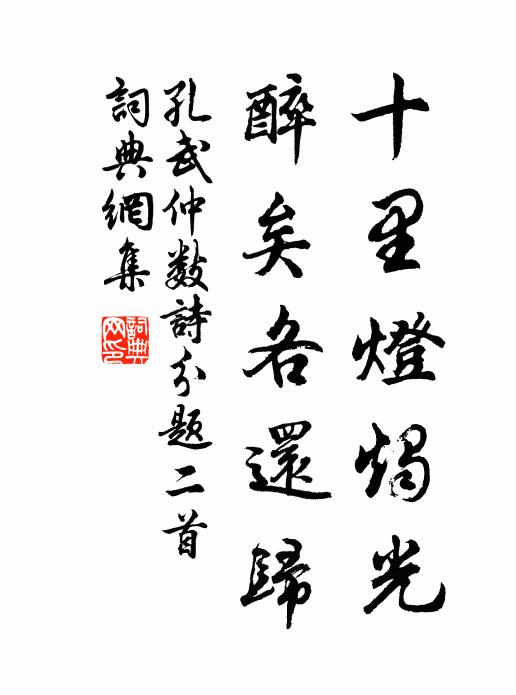 十里燈燭光
醉矣各還歸
孔武仲數詩分題二首
詞典網集
詞典網印